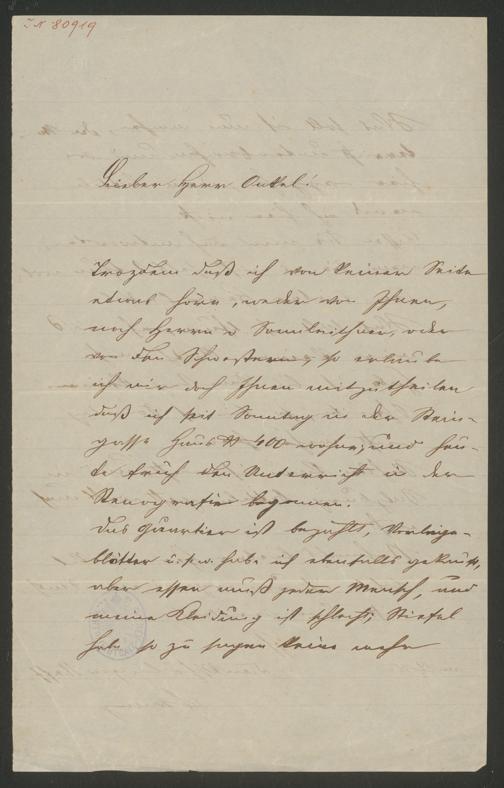 IN 80919
Lieber Herr Onkel!
Trozdem daß ich von keiner Seite
etwas höre, weder von Ihnen,
noch Herrn v Sonnleithner, oder
von den Schwestern, so erlaube
ich mir doch Ihnen mitzutheilen
daß ich seit Sonntag in der Stein-
gasse Haus N 400 wohne, und heu-
te früh den Unterricht in der
Stenografie begonnen.
Das Quartier ist bezahlt, Vorlege-
blätter u. s. w. habe ich ebenfalls gekauft,
aber essen muß jeder Mensch, und
meine Kleidung ist schlecht; Stiefel
habe so zu sagen keine mehr